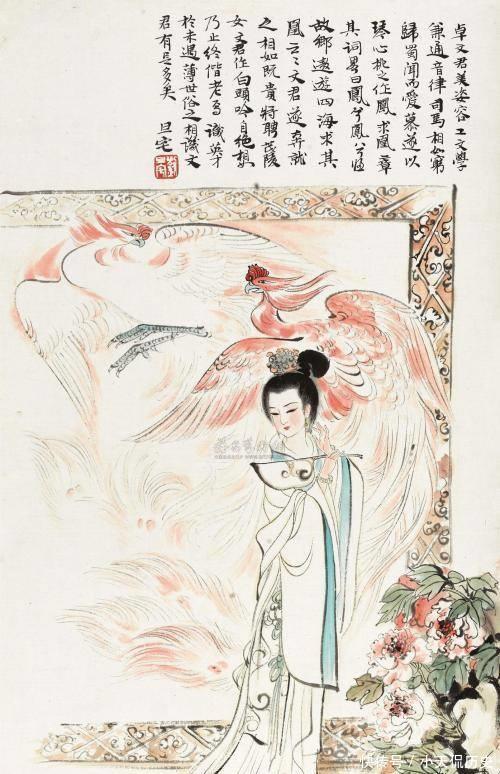 卓文君美姿容工文學
兼通音律司馬相如窮
歸蜀聞而愛慕遂以
琴心挑之作鳳求凰章
其詞畧曰鳳兮鳳兮歸
故鄉遨遊四海求其
凰云云文君遂奔就
之相如既貴特聘茂陵
女文君作白頭吟自絕想
乃止終偕老焉識英才
於未遇薄世俗之相譏文
君有足多矣 旦宅
快传号/小天侃历史